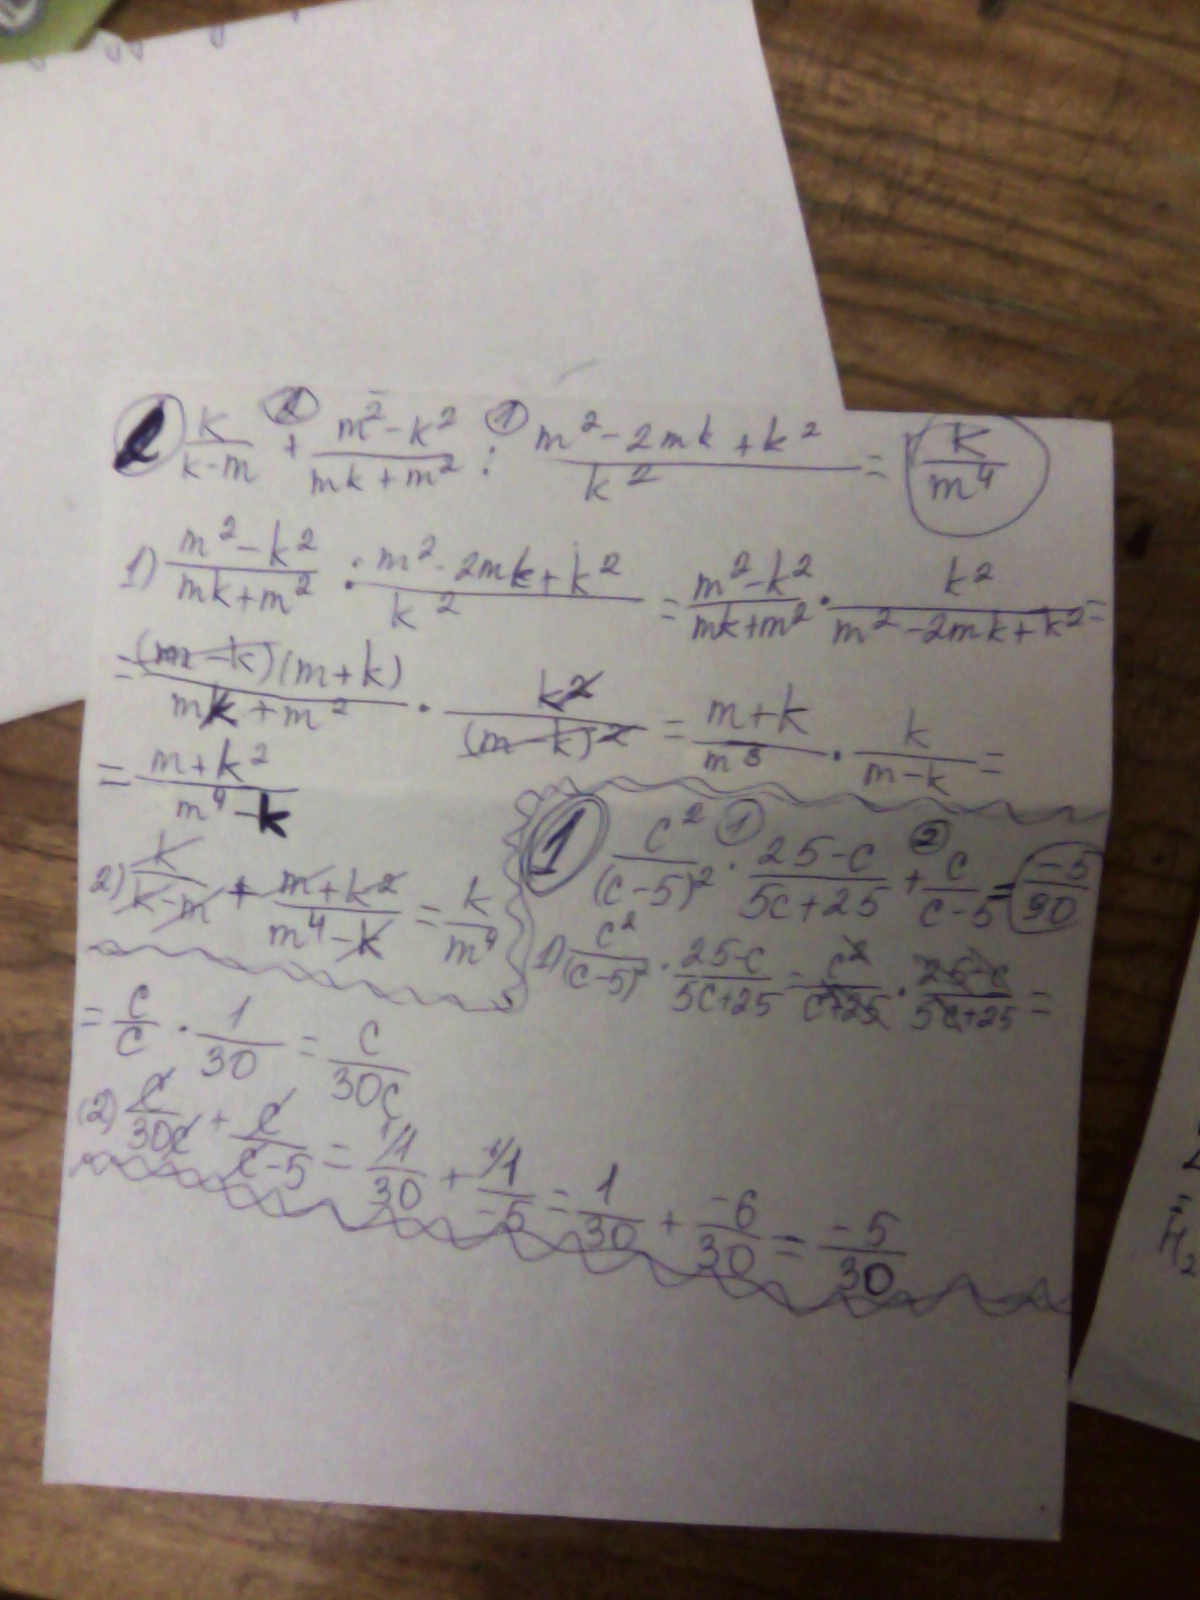 2 k/(k-m) + (m²-k²)/(mk+m²) : (m²-2mk+k²)/k² = k/m⁴
1) (m²-k²)/(mk+m²) : (m²-2mk+k²)/k² = (m²-k²)/(mk+m²) · k²/(m²-2mk+k²) =
= (m-k)(m+k)/(mk+m²) · k²/(m-k)² = (m+k)/m³ · k/(m-k) =
= (m+k²)/(m⁴-k)
2) k/(k-m) + (m+k²)/(m⁴-k) = k/m⁴
1 c²/(c-5)² · (25-c)/(5c+25) + c/(c-5) = -5/30
1) c²/(c-5)² · (25-c)/(5c+25) = c²/(c+25) · (25-c)/(5c+25) =
= c/c · 1/30 = c/30c
(2) c/30c + c/(c-5) = 1/30 + 1/-5 = 1/30 + -6/30 = -5/30
H₂